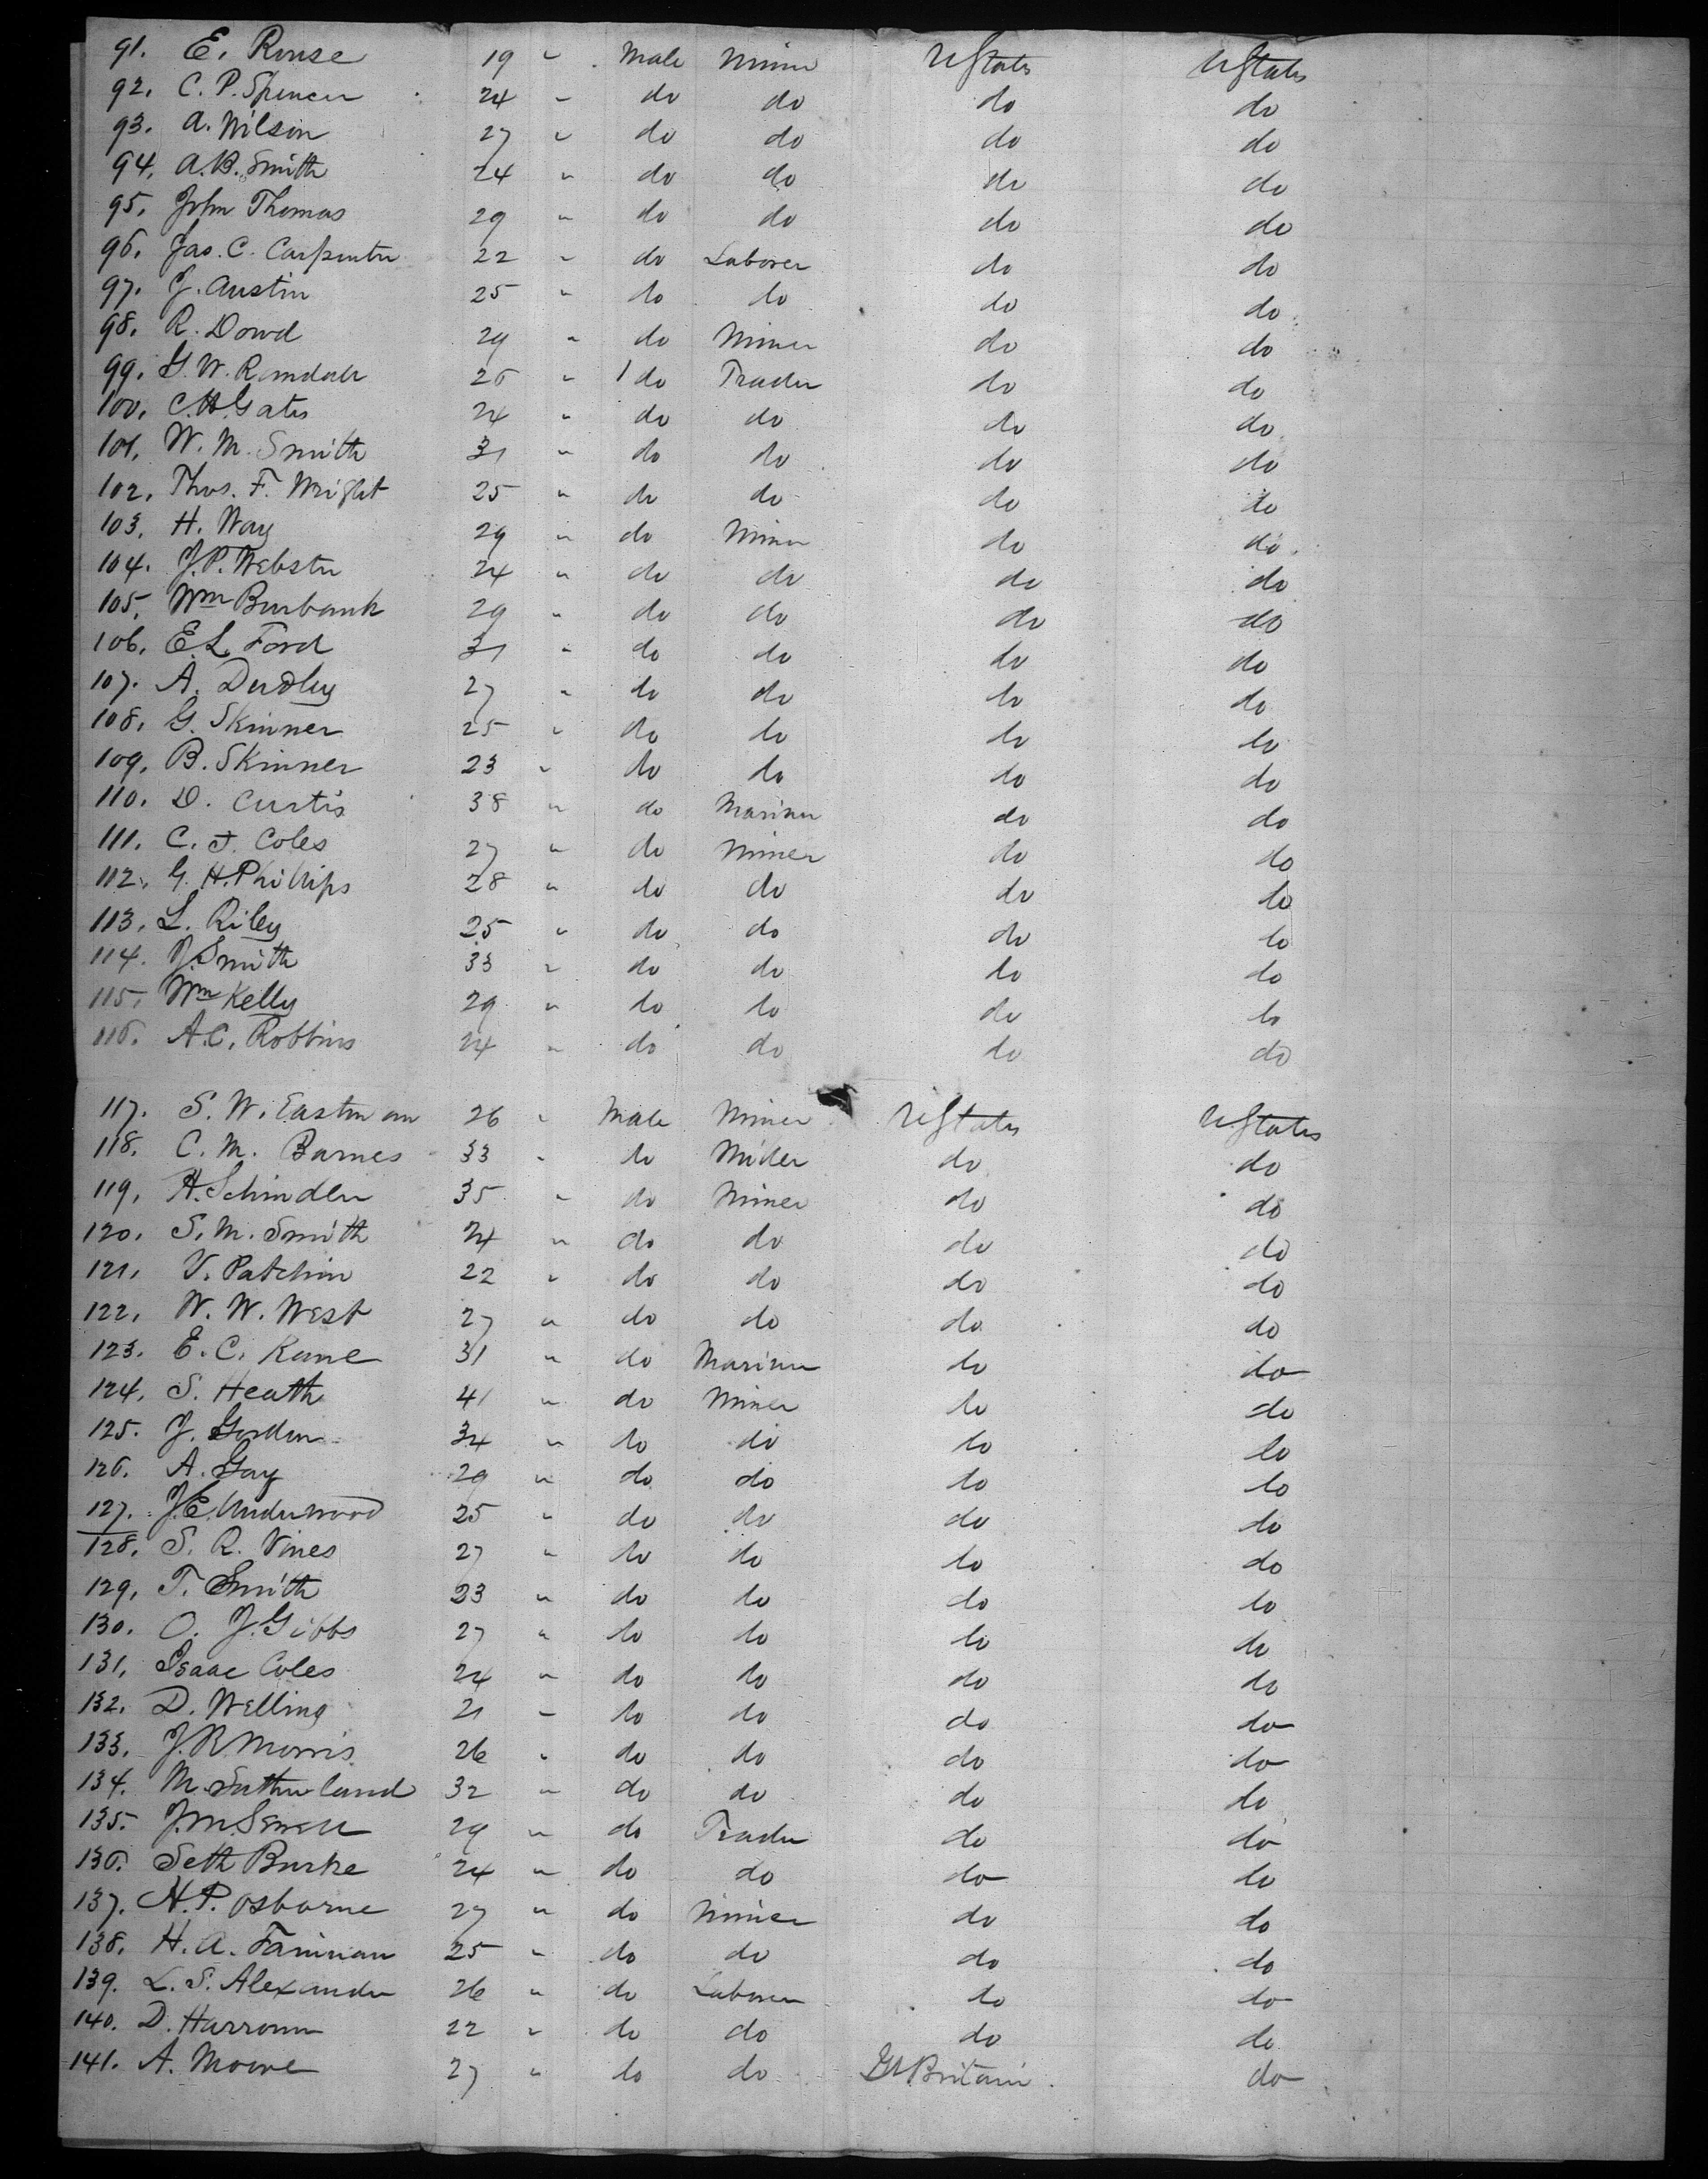 91. E. Rouse 19 " Male Miner UStates UStates
92. C. P. Spencer 24 " do do do do
93. A. Wilson 27 " do do do do
94. A. B. Smith 24 " do do do do
95. John Thomas 29 " do do do do
96. Jas. C. Carpenter 22 " do Laborer do do
97. J. Austin 25 " do do do do
98. R. Dowd 29 " do Miner do do
99. G. W. Randall 26 " do Trader do do
100. C. H. Gates 24 " do do do do
101. W. M. Smith 31 " do do do do
102. Thos. F. Wright 25 " do do do do
103. H. Way 29 " do Miner do do
104. J. P. Webster 24 " do do do do
105. Wm Burbank 29 " do do do do
106. E. L. Ford 31 " do do do do
107. A. Dudley 27 " do do do do
108. G. Skinner 25 " do do do do
109. B. Skinner 23 " do do do do
110. D. Curtis 38 " do Mariner do do
111. C. J. Coles 27 " do Miner do do
112. G. H. Phillips 28 " do do do do
113. L. Riley 25 " do do do do
114. J. Smith 33 " do do do do
115. Wm Kelly 29 " do do do do
116. A. C. Robbins 24 " do do do do
117. S. W. Eastman 26 " Male Miner UStates UStates
118. C. M. Barnes 33 " do Miller do do
119. H. Schindler 35 " do Miner do do
120. S. M. Smith 24 " do do do do
121. V. Patchin 22 " do do do do
122. W. W. West 27 " do do do do
123. E. C. Kane 31 " do Mariner do do
124. S. Heath 41 " do Miner do do
125. J. Gordon 34 " do do do do
126. A. Gay 29 " do do do do
127. J. E. Underwood 25 " do do do do
128. S. R. Vines 27 " do do do do
129. T. Smith 23 " do do do do
130. O. J. Gibbs 27 " do do do do
131. Isaac Coles 24 " do do do do
132. D. Welling 21 " do do do do
133. J. R. Morris 26 " do do do do
134. M. Sutherland 32 " do do do do
135. J. M. Sewell 29 " do Trader do do
136. Seth Burke 24 " do do do do
137. H. P. Osborne 27 " do Miner do do
138. H. A. 25 " do do do do
139. L. S. Alexander 26 " do Laborer do do
140. D. 22 " do do do do
141. A. Moore 27 " do do Gt Britain do